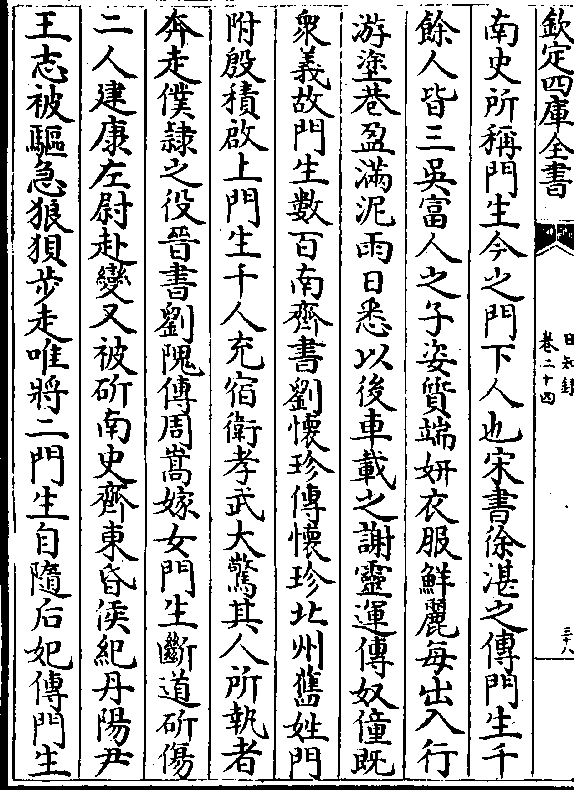 欽定四庫全書
日知録
卷二十四
三十八
南史所稱門生今之門下人也宋書徐湛之傳門生千
餘人皆三吳富人之子姿質端妍衣服鮮麗每出入行
游塗巷盈滿泥雨日悉以後車載之謝靈運傳奴僮既
衆義故門生數百南齊書劉懷珍傳懷珍北州舊姓門
附殷積啟上門生千人充宿衛孝武大驚其人所執者
奔走僕隷之役晉書劉隗傳周嵩嫁女門生斷道斫傷
二人建康左尉赴變又被斫南史齊東昏侯紀丹陽尹
王志被驅急狼狽步走唯將二門生自隨后妃傳門生